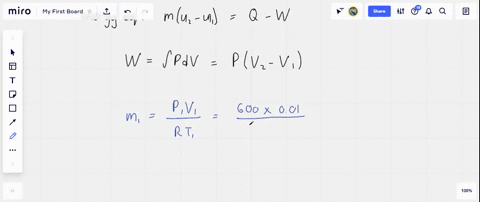 miro My First Board Share
m(u₂-u₁) = Q - W
W = ∫PdV = P(V₂ - V₁)
m₁ = P₁V₁ / RT₁ = 600 x 0.01
100%